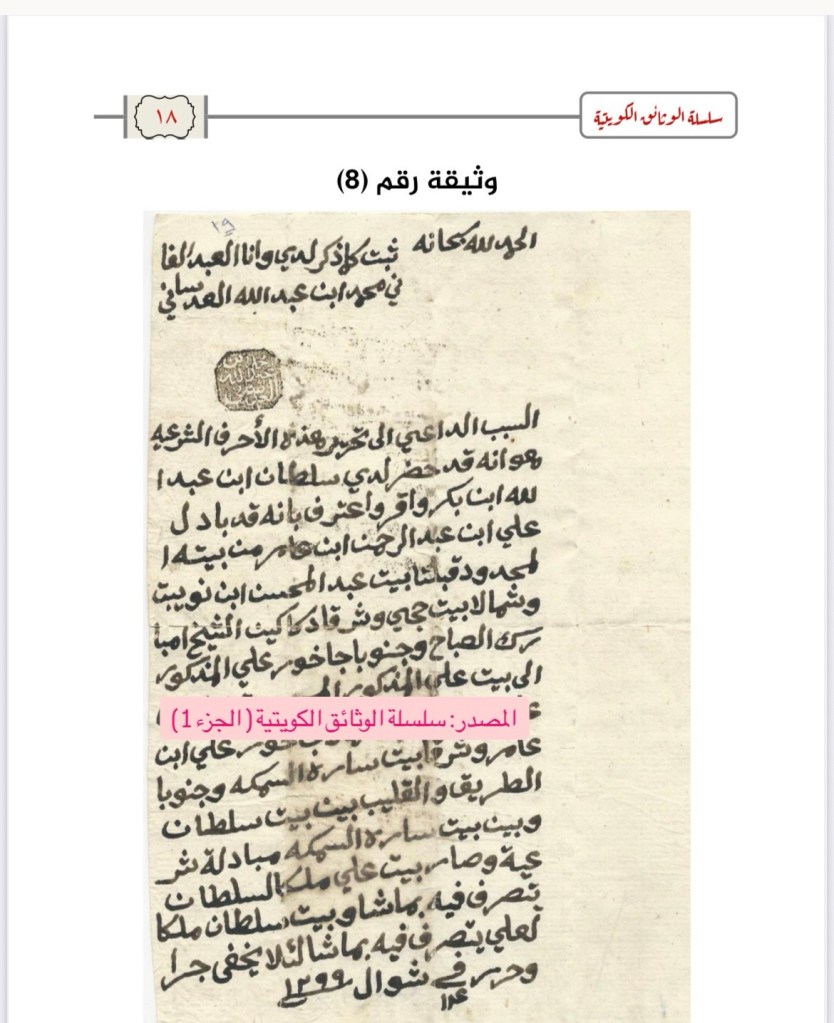 سلسلة الوثائق الكويتية
١٨
وثيقة رقم (8)
٢٩
الحمد لله سبحانه
ثبت كلما ذكر لدي وانا العبد الفا
ني محمد ابن عبد الله العدساني
السبب الداعي الى تحرير هذه الأحرف الشرعيه
هو انه قد حضر لدي سلطان ابن عبد ا
لله ابن بكر واقر واعترف بانه قد بادل
علي ابن عبد الرحمن ابن عامر من بيته ا
لمحدود قبلتا بيت عبد المحسن ابن نويبت
وشمالا بيت حجي وشرقا دكاكين الشيخ امبا
رك الصباح وجنوبا جاخور علي المذكور
الى بيت علي المذكور
المصدر: سلسلة الوثائق الكويتية (الجزء 1)
علي ابن
عامر وشرقا بيت سارة السمكه وجنوبا
الطريق والقليب بين بيت سلطان
وبين بيت سارة السمكه مبادلة شر
عية وصار بيت علي ملكا لسلطان
يتصرف فيه بماشا وبيت سلطان ملكا
لعلي يتصرف فيه بماشا لئلا يخفى جرا
وحرر في شوال ١٢٩٩